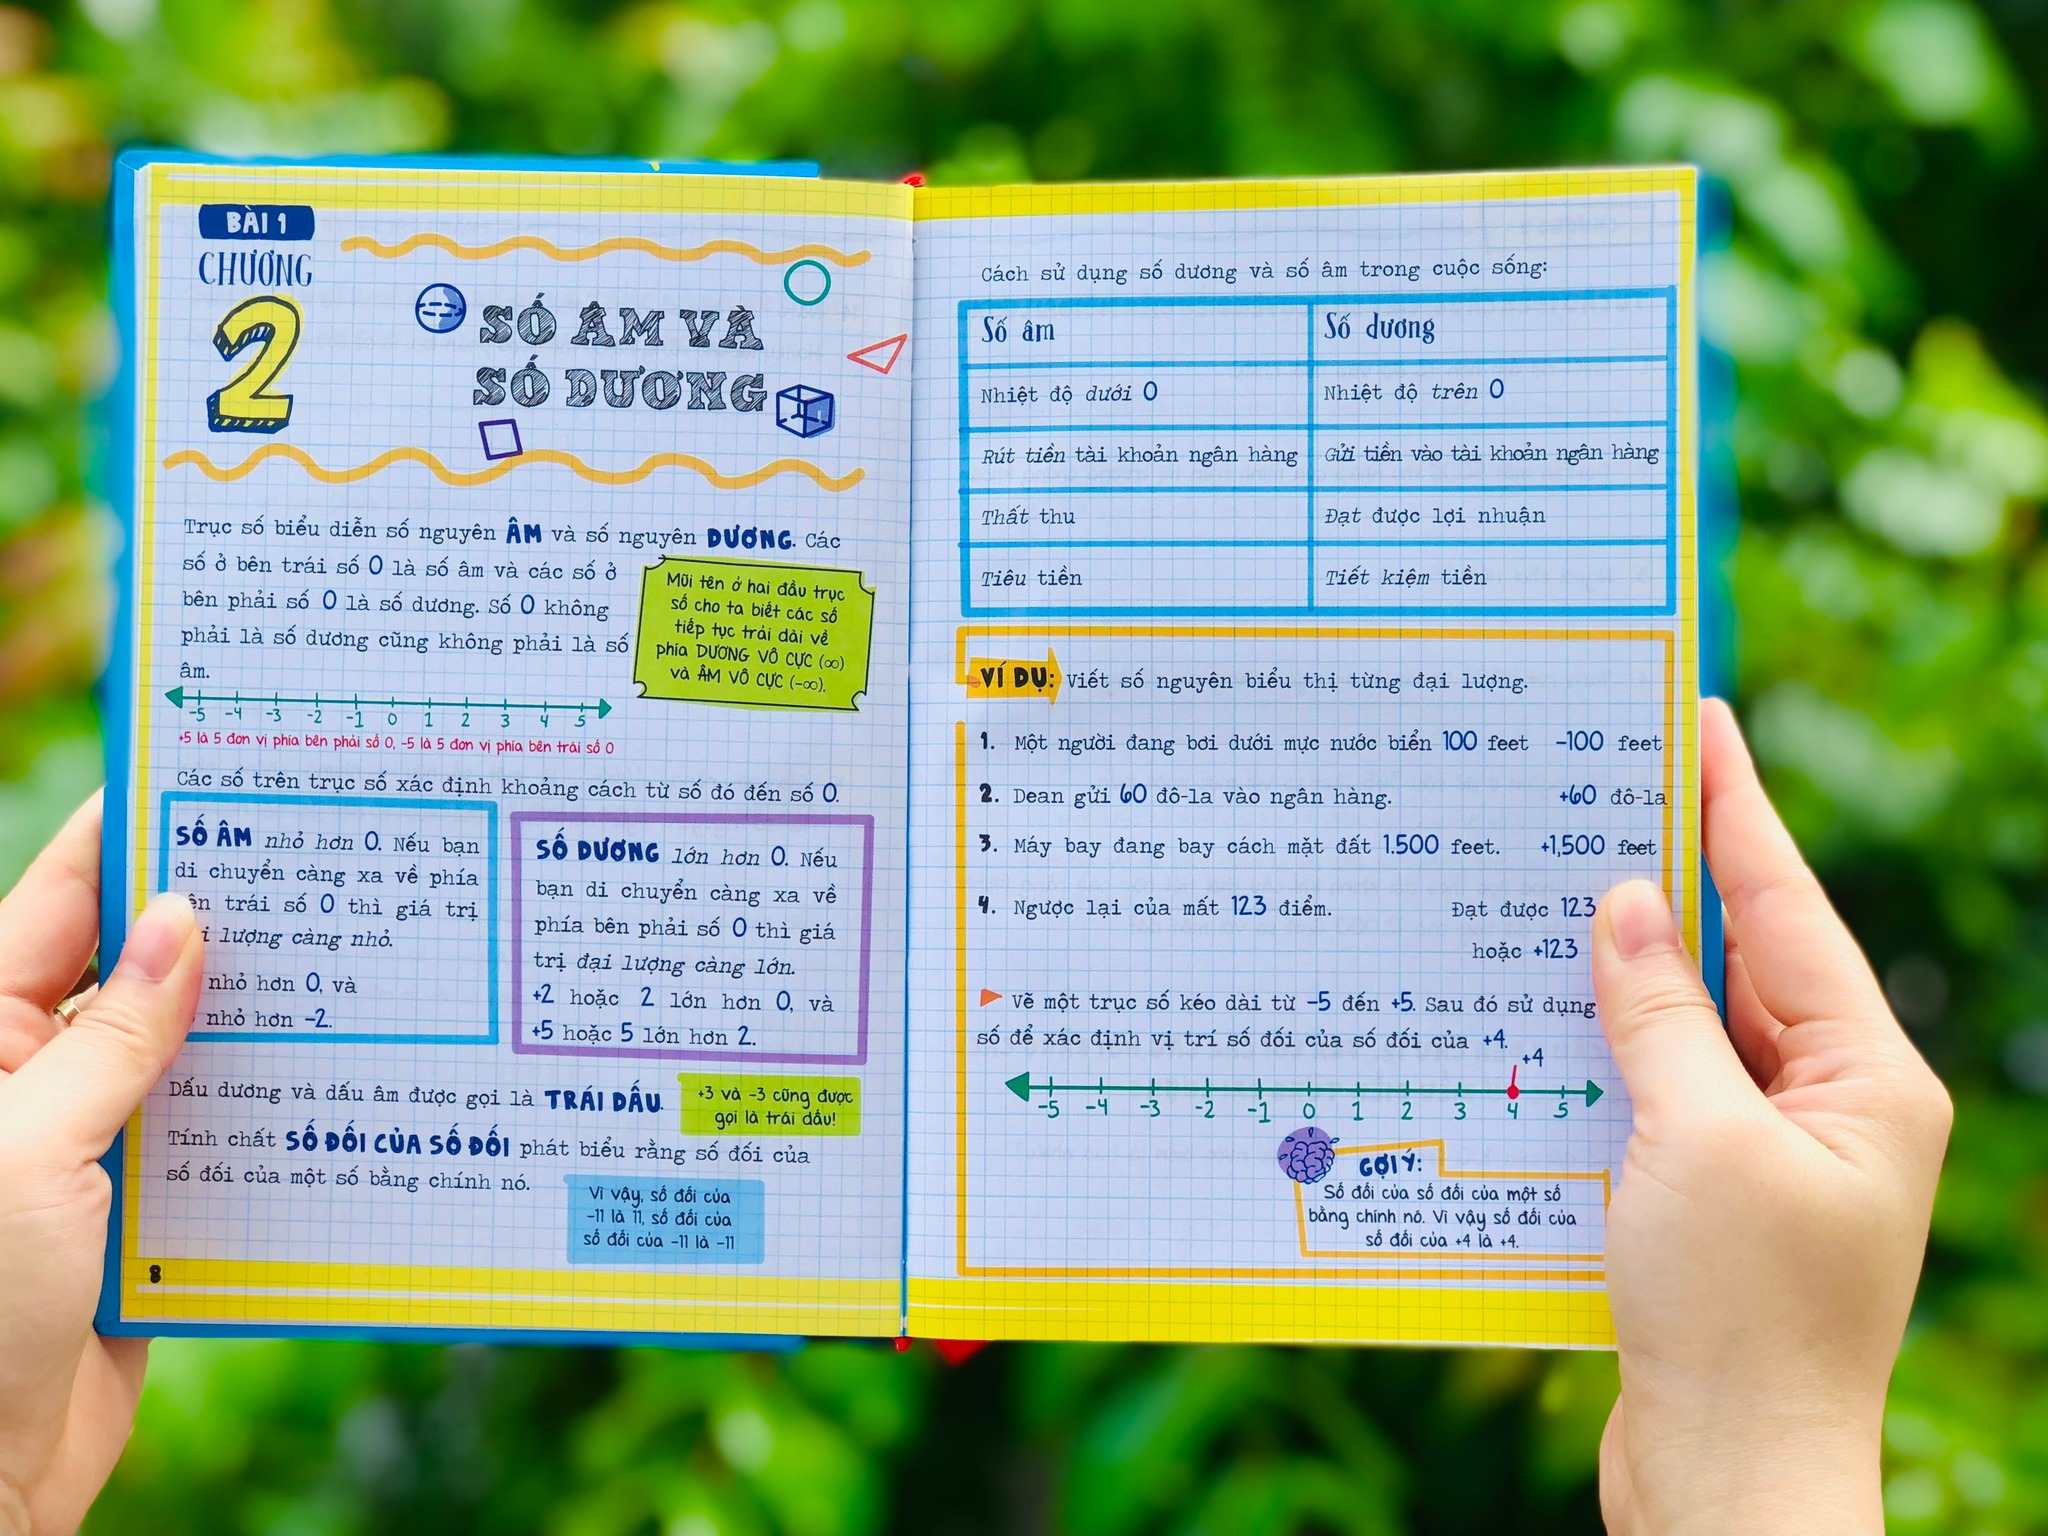 BÀI 1
CHƯƠNG
2
SỐ ÂM VÀ
SỐ DƯƠNG
Trục số biểu diễn số nguyên ÂM và số nguyên DƯƠNG. Các
số ở bên trái số 0 là số âm và các số ở
bên phải số 0 là số dương. Số 0 không
phải là số dương cũng không phải là số
âm.
Mũi tên ở hai đầu trục
số cho ta biết các số
tiếp tục trải dài về
phía DƯƠNG VÔ CỰC (∞)
và ÂM VÔ CỰC (-∞).
-5 -4 -3 -2 -1 0 1 2 3 4 5
+5 là 5 đơn vị phía bên phải số 0, -5 là 5 đơn vị phía bên trái số 0
Các số trên trục số xác định khoảng cách từ số đó đến số 0.
SỐ ÂM nhỏ hơn 0. Nếu bạn
di chuyển càng xa về phía
trái số 0 thì giá trị
lượng càng nhỏ.
nhỏ hơn 0, và
nhỏ hơn -2.
SỐ DƯƠNG lớn hơn 0. Nếu
bạn di chuyển càng xa về
phía bên phải số 0 thì giá
trị đại lượng càng lớn.
+2 hoặc 2 lớn hơn 0, và
+5 hoặc 5 lớn hơn 2.
Dấu dương và dấu âm được gọi là TRÁI DẤU.
+3 và -3 cũng được
gọi là trái dấu!
Tính chất SỐ ĐỐI CỦA SỐ ĐỐI phát biểu rằng số đối của
số đối của một số bằng chính nó.
Vì vậy, số đối của
-11 là 11, số đối của
số đối của -11 là -11
8
Cách sử dụng số dương và số âm trong cuộc sống:
Số âm Số dương
Nhiệt độ dưới 0 Nhiệt độ trên 0
Rút tiền tài khoản ngân hàng Gửi tiền vào tài khoản ngân hàng
Thất thu Đạt được lợi nhuận
Tiêu tiền Tiết kiệm tiền
VÍ DỤ: Viết số nguyên biểu thị từng đại lượng.
1. Một người đang bơi dưới mực nước biển 100 feet -100 feet
2. Dean gửi 60 đô-la vào ngân hàng. +60 đô-la
3. Máy bay đang bay cách mặt đất 1.500 feet. +1,500 feet
4. Ngược lại của mất 123 điểm. Đạt được 123
hoặc +123
Vẽ một trục số kéo dài từ -5 đến +5. Sau đó sử dụng
số để xác định vị trí số đối của số đối của +4.
+4
-5 -4 -3 -2 -1 0 1 2 3 4 5
GỢI Ý:
Số đối của số đối của một số
bằng chính nó. Vì vậy số đối của
số đối của +4 là +4.